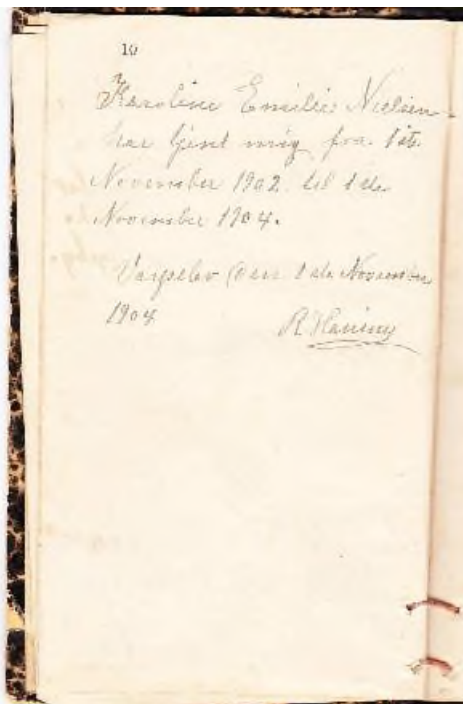 10
Karoline Emilie Nielsen
har tjent mig fra 1ste
November 1902 til 1ste
November 1904.
Varpelev den 1ste November
1904 R Hansen